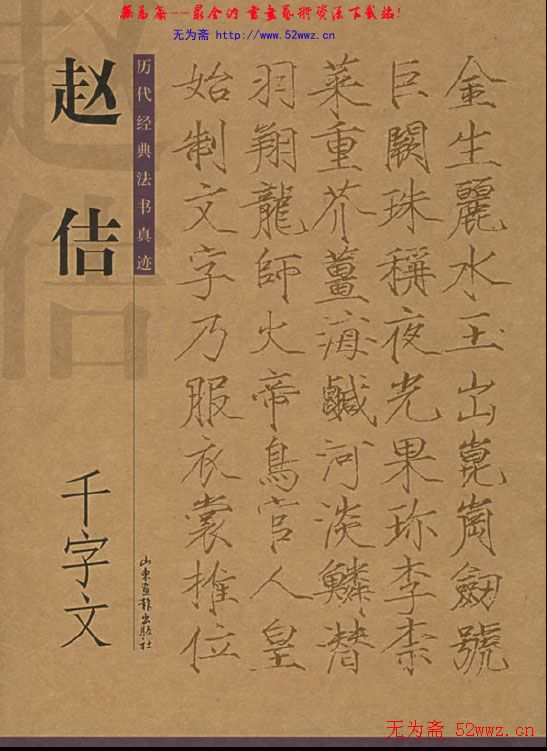 无为斋---最全的书画艺术资源下载站!
无为斋 http://www.52wwz.cn
赵佶
历代经典法书真迹
千字文
山东画报出版社
金生麗水玉出崑崗劔號
巨闕珠稱夜光果珎李柰
菜重芥薑海鹹河淡鱗潛
羽翔龍師火帝鳥官人皇
始制文字乃服衣裳推位
无为斋 52wwz.cn